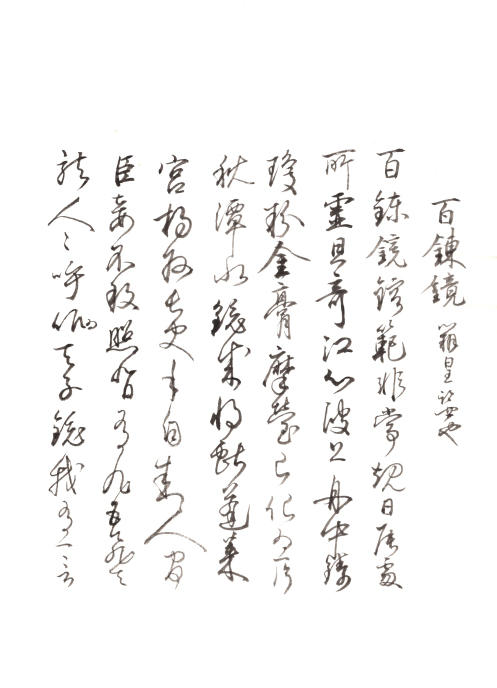 百鍊鏡 皇 也
百鍊鏡鎔範非常規日辰處
所靈且奇江心波上舟中鑄
瓊粉金膏摩瑩已化為一片
秋潭水鏡成將獻蓬萊
宮楊州長吏手自封人間
臣妾不敢照背有九五飛天
龍人々呼為天子鏡我有一言